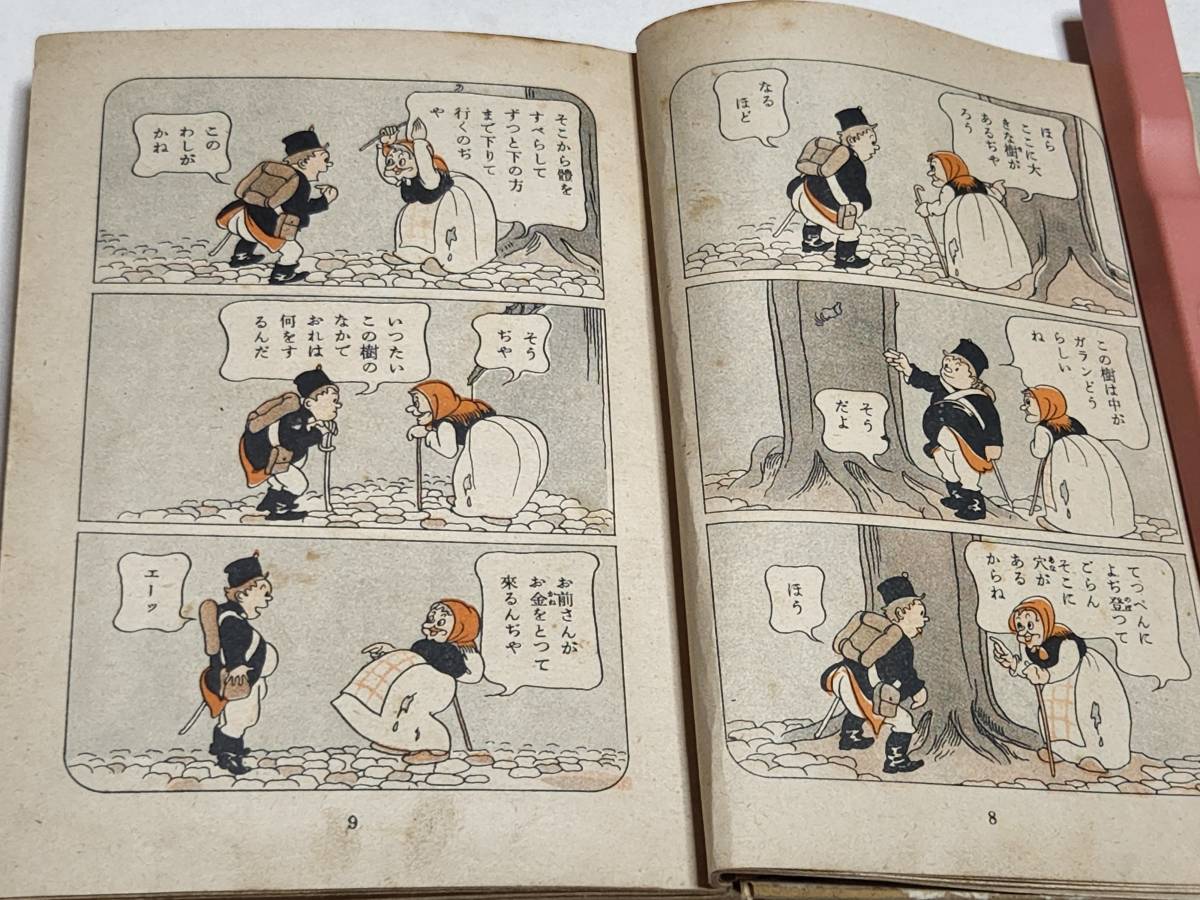 ほら
ここに大
きな樹が
あるぢや
ろう
なる
ほど
この樹は中が
ガランどう
らしい
ね
そう
だよ
てっぺんに
よぢ登つて
ごらん
そこに
穴が
ある
からね
ほう
8
そこから體を
すべらして
ずつと下の方
まで下りて
行くのぢ
や
この
わしが
かね
いつたい
この樹の
なかで
おれは
何をす
るんだ
そう
ぢや
お前さんが
お金をとつて
來るんぢや
エーッ
9